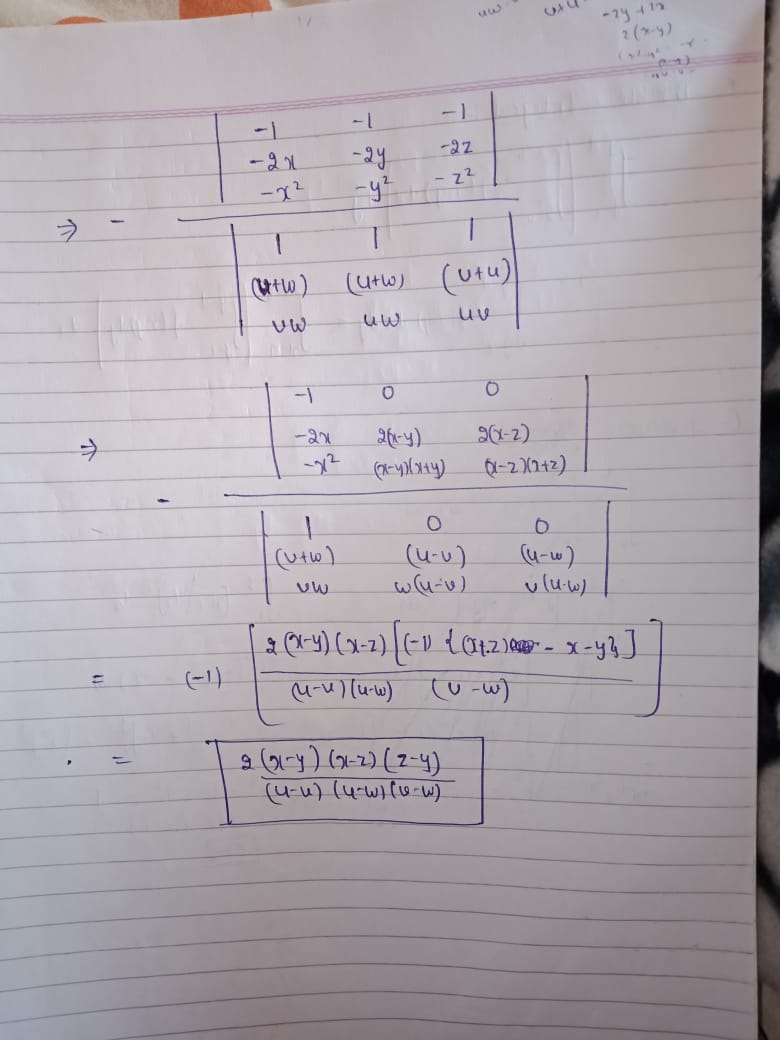 uw
-2y+2x
2(x-y)
-1 -1 -1
-2x -2y -2z
-x² -y² -z²
⇒ -
1 1 1
(v+w) (u+w) (v+u)
vw uw uv
-1 0 0
⇒
-2x 2(x-y) 2(x-z)
-x² (x-y)(x+y) (x-z)(x+z)
-
1 0 0
(v+w) (u-v) (u-w)
vw w(u-v) v(u-w)
= (-1) [ 2(x-y)(x-z)[(-1){(x+z) - x-y}] ]
(u-v)(u-w) (v-w)
. = 2(x-y)(x-z)(z-y)
(u-v)(u-w)(v-w)